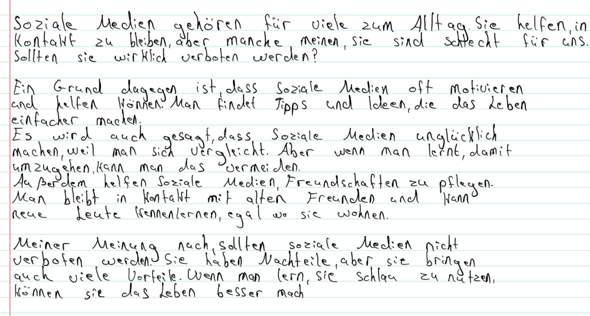 Soziale Medien gehören für viele zum Alltag. Sie helfen, in
Kontakt zu bleiben, aber manche meinen, sie sind schlecht für uns.
Sollten sie wirklich verboten werden?
Ein Grund dagegen ist, dass Soziale Medien oft motivieren
und helfen können. Man findet Tipps und Ideen, die das Leben
einfacher machen.
Es wird auch gesagt, dass Soziale Medien unglücklich
machen, weil man sich vergleicht. Aber wenn man lernt, damit
umzugehen, kann man das vermeiden.
Außerdem helfen Soziale Medien, Freundschaften zu pflegen.
Man bleibt in Kontakt mit alten Freunden und kann
neue Leute kennenlernen, egal wo sie wohnen.
Meiner Meinung nach, sollten soziale Medien nicht
verboten werden. Sie haben Nachteile, aber sie bringen
auch viele Vorteile. Wenn man lern, sie schlau zu nutzen,
können sie das Leben besser mach